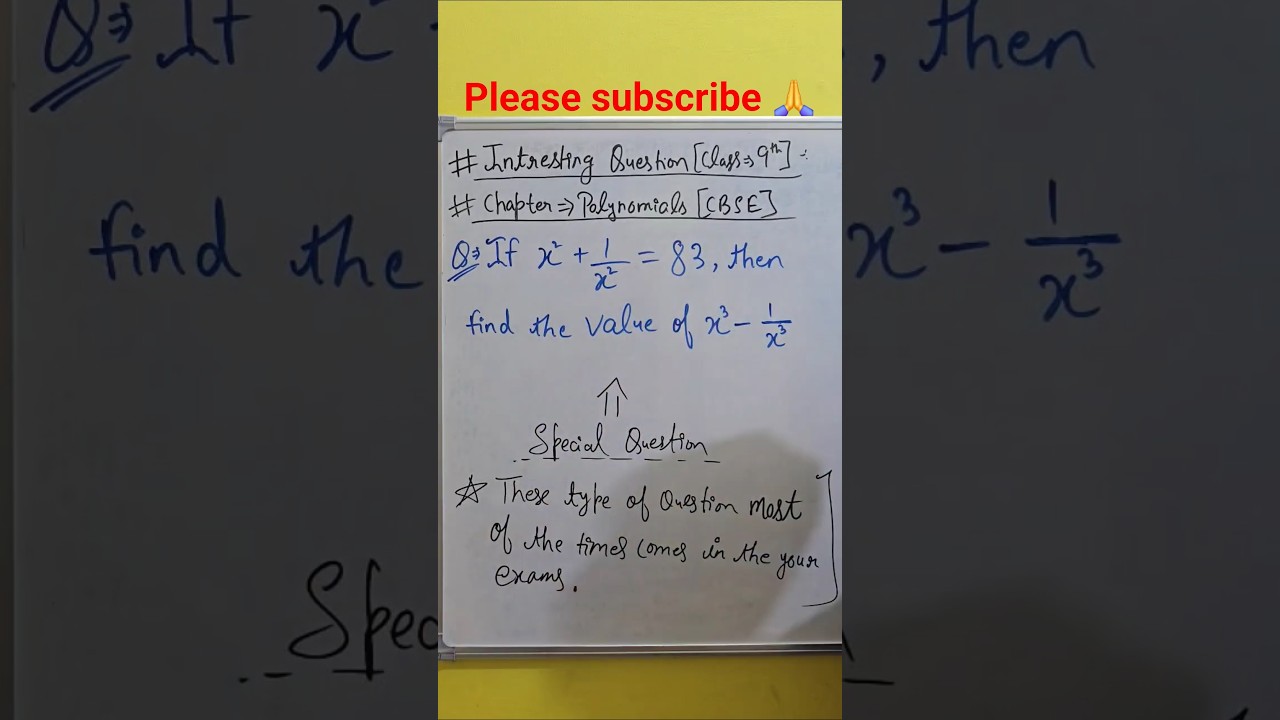 Please subscribe 🙏
# Intresting Question [Class⇒9th] :-
# Chapter⇒Polynomials [CBSE]
Q⇒ If x² + 1/x² = 83, then
find the value of x³ - 1/x³
⇑
Special Question
☆ These type of Question most
of the times comes in the your
exams.